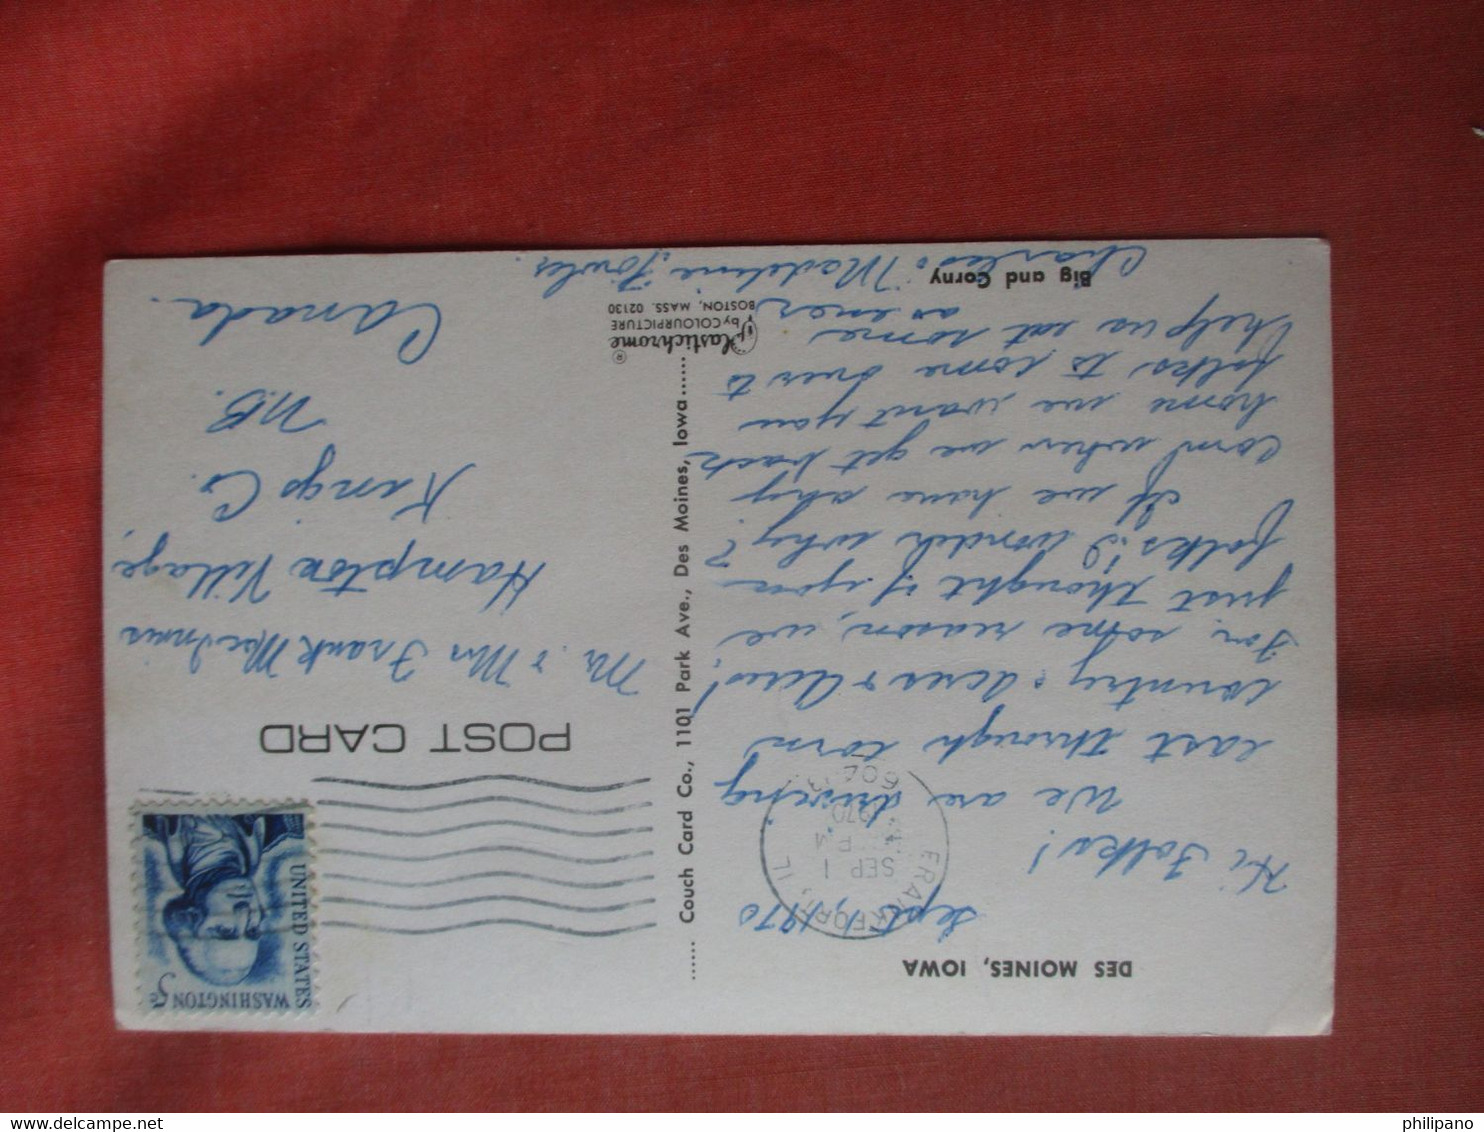 DES MOINES, IOWA
Sept 1, 1970
Hi Folks!
We are driving
east through corn
country & acres & acres!
For some reason, we
just thought of you
folks. I wonder why?
If we have any
corn when we get back
home we want you
folks to come over to
help us eat some
as ever
Charles & Madeline Fowler
Big and Corny
...... Couch Card Co., 1101 Park Ave., Des Moines, Iowa ......
Plastichrome ®
by COLOURPICTURE
BOSTON, MASS. 02130
FRANKFORT, IL
SEP 1
PM
1970
604
UNITED STATES
WASHINGTON 5c
POST CARD
Mr. & Mrs Frank MacInnis
Hampton Village,
Kings Co.
N.B.
Canada.
www.delcampe.net
philipano